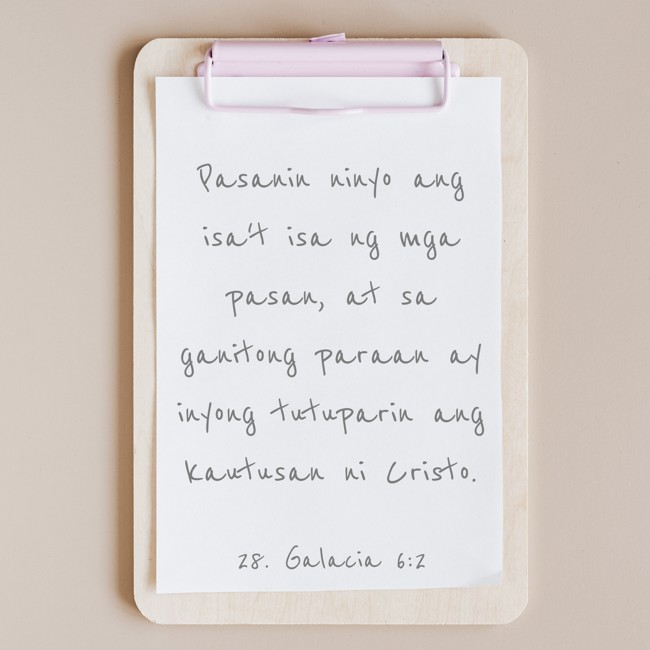 Pasanin ninyo ang
isa't isa ng mga
pasan, at sa
ganitong paraan ay
inyong tutuparin ang
kautusan ni Cristo.
28. Galacia 6:2